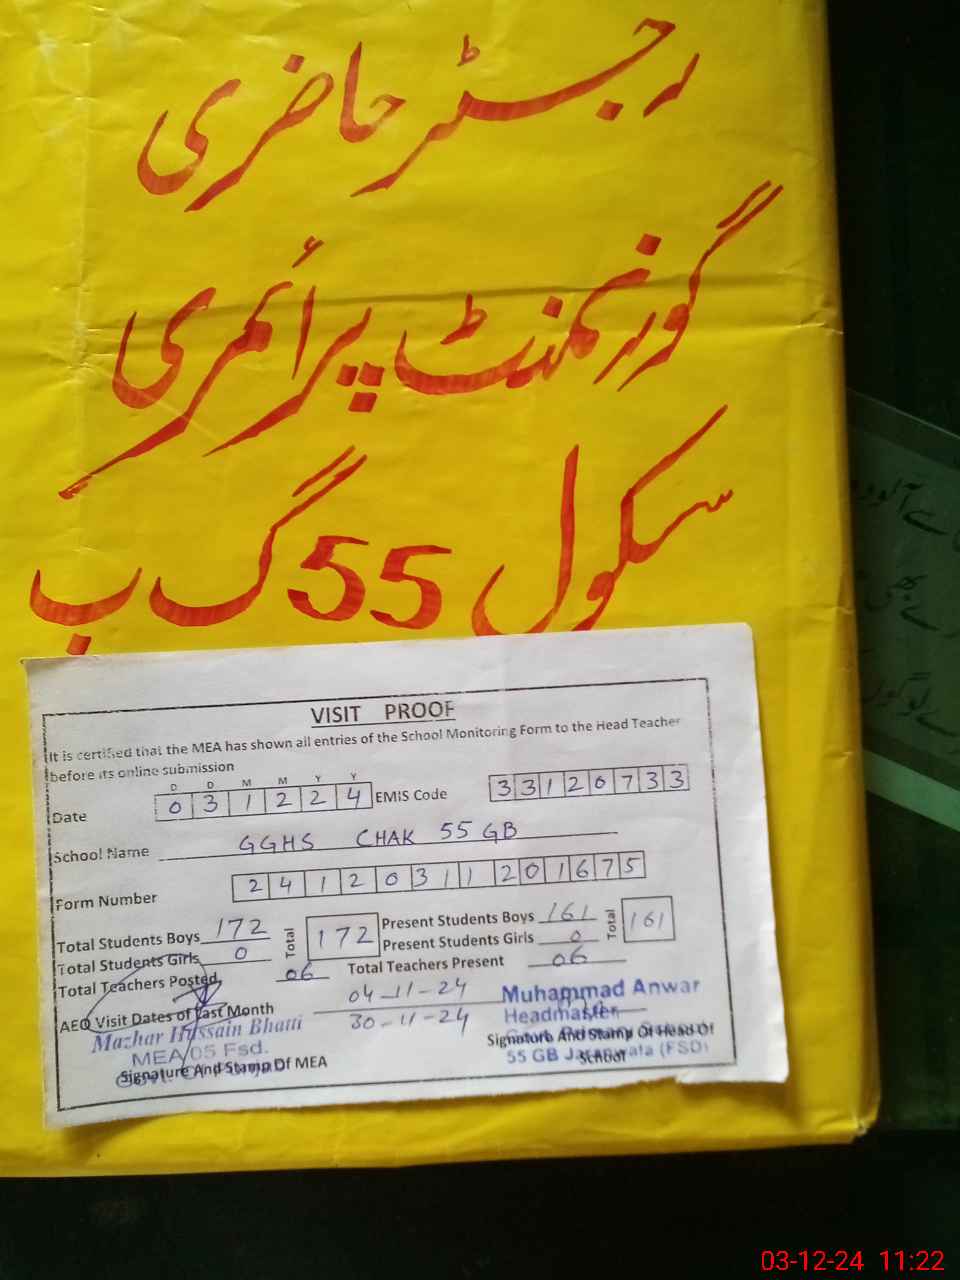 رجسٹر حاضری
گورنمنٹ پرائمری
سکول 55 گ ب
VISIT PROOF
It is certified that the MEA has shown all entries of the School Monitoring Form to the Head Teacher
before its online submission
D D M M Y Y
Date 0 3 1 2 2 4 EMIS Code 3 3 1 2 0 7 3 3
School Name GGHS CHAK 55 GB
Form Number 2 4 1 2 0 3 1 1 2 0 1 6 7 5
Total Students Boys 172 Total 172 Present Students Boys 161 Total 161
Total Students Girls 0 Present Students Girls 0
Total Teachers Posted 06 Total Teachers Present 06
AEO Visit Dates of Last Month 04-11-24
30-11-24
Mazhar Hussain Bhatti
MEA/05 Fsd.
Signature And Stamp Of MEA
Muhammad Anwar
Headmaster
Signature And Stamp Of Head Of
School
55 GB Jaranwala (FSD)
03-12-24 11:22